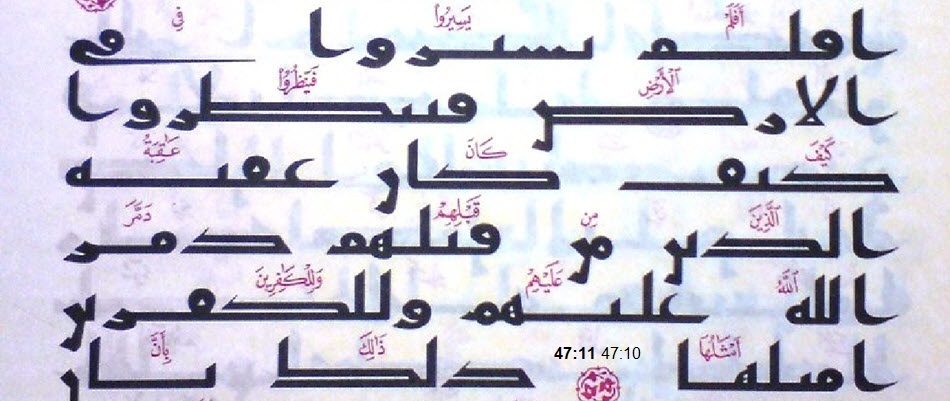 أَفَلَمْ يَسِيرُوا۟ فِى
افلم يسيروا في
ٱلْأَرْضِ فَيَنظُرُوا۟
الارض فينظروا
كَيْفَ كَانَ عَـٰقِبَةُ
كيف كان عقبه
ٱلَّذِينَ مِن قَبْلِهِمْ دَمَّرَ
الذين من قبلهم دمر
ٱللَّهُ عَلَيْهِمْ وَلِلْكَـٰفِرِينَ
الله عليهم وللكفرين
أَمْثَـٰلُهَا 47:10 47:11 ذَٰلِكَ بِأَنَّ
امثلها ذلك بان